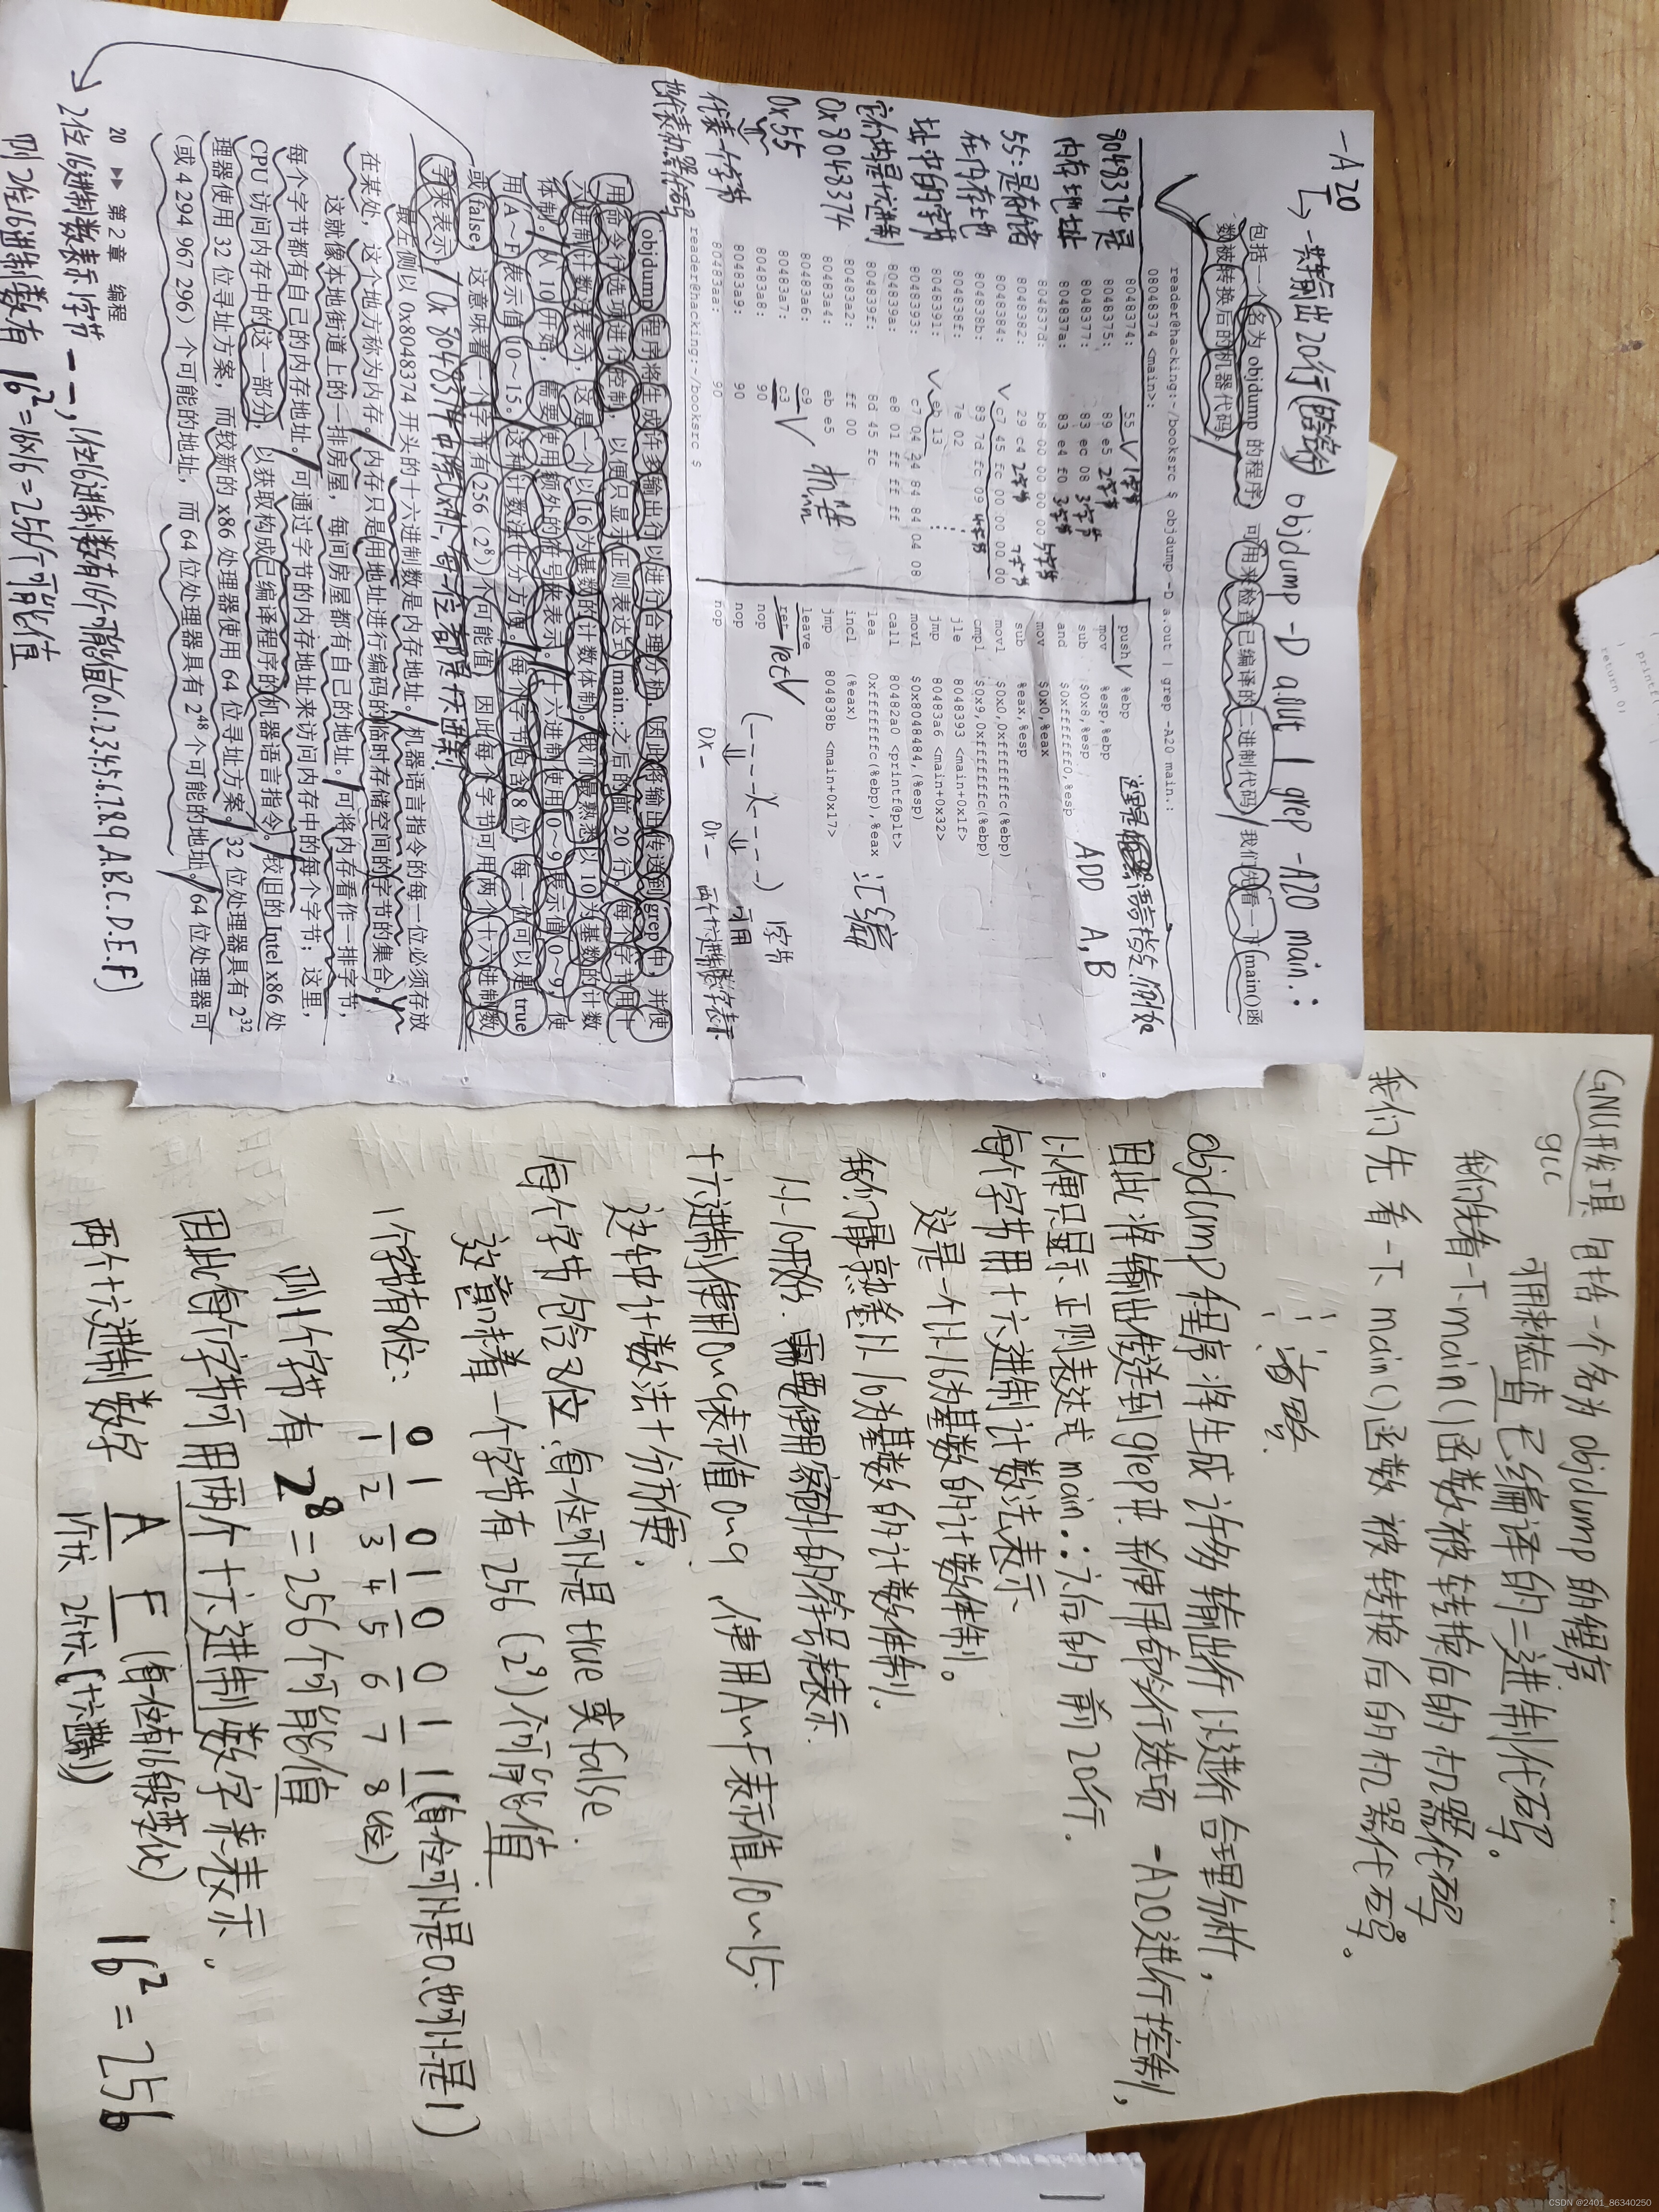 -A20
→一共输出20行(略等) objdump -D a.out | grep -A20 main.:
包括一个名为 objdump 的程序,可用来检查已编译的二进制代码。我们先看一下 main()函
数被转换后的机器代码。
reader@hacking:~/booksrc $ objdump -D a.out | grep -A20 main.:
08048374 <main>:
8048374: 55 push %ebp
8048375: 89 e5 mov %esp,%ebp
8048377: 83 ec 08 sub $0x8,%esp
804837a: 83 e4 f0 and $0xfffffff0,%esp
804837d: b8 00 00 00 00 mov $0x0,%eax
8048382: 29 c4 sub %eax,%esp
8048384: c7 45 fc 00 00 00 00 movl $0x0,0xfffffffc(%ebp)
804838b: 83 7d fc 09 cmpl $0x9,0xfffffffc(%ebp)
804838f: 7e 02 jle 8048393 <main+0x1f>
8048391: eb 13 jmp 80483a6 <main+0x32>
8048393: c7 04 24 84 84 04 08 movl $0x8048484,(%esp)
804839a: e8 01 ff ff ff call 80482a0 <printf@plt>
804839f: 8d 45 fc lea 0xfffffffc(%ebp),%eax
80483a2: ff 00 incl (%eax)
80483a4: eb e5 jmp 804838b <main+0x17>
80483a6: c9 leave
80483a7: c3 ret
80483a8: 90 nop
80483a9: 90 nop
80483aa: 90 nop
reader@hacking:~/booksrc $
8048374是
内存地址
55:是存储
在内存地
址中的字节
它们两是十六进制
0x8048374
0x55
⇓
代表一个字节
也代表机器代码
1字节
2字节
3字节
3字节
5字节
2字节
7字节
4字节
机器
汇编
ADD A,B
ret
1字节
可用
0x- 0x-
两个十六进制数字表示
objdump 程序将生成许多输出行以进行合理分析,因此将输出传送到 grep 中,并使
用命令行选项进行控制,以便只显示正则表达式 main.:之后的前 20 行。每个字节用十
六进制计数法表示,这是一个以 16 为基数的计数体制。我们最熟悉以 10 为基数的计数
体制。从 10 开始,需要使用额外的符号来表示。十六进制使用 0~9 表示值 0~9,使
用 A~F 表示值 10~15。这种计数法十分方便。每个字节包含 8 位,每一位可以是 true
或 false,这意味着一个字节有 256(2⁸)个可能值,因此每个字节可用两个十六进制数
字来表示。
0x8048374中除0x外,每一位都是十六进制
最左侧以 0x8048374 开头的十六进制数是内存地址。机器语言指令的每一位必须存放
在某处,这个地方称为内存。内存只是用地址进行编码的临时存储空间的字节的集合。
这就像本地街道上的一排房屋,每间房屋都有自己的地址。可将内存看作一排字节,
每个字节都有自己的内存地址。可通过字节的内存地址来访问内存中的每个字节;这里,
CPU 访问内存中的这一部分,以获取构成已编译程序的机器语言指令。较旧的 Intel x86 处
理器使用 32 位寻址方案,而较新的 x86 处理器使用 64 位寻址方案。32 位处理器具有 2³²
(或 4 294 967 296)个可能的地址,而 64 位处理器具有 2⁴⁸ 个可能的地址。64 位处理器可
20 ▶▶ 第 2 章 编程
2位16进制数表示1字节——,1位16进制数有16个可能值(0.1.2.3.4.5.6.7.8.9 A.B.C.D.E.F)
则2位16进制数有 16²=16x16=256个可能值
GNU开发工具 包括一个名为 objdump 的程序
gcc
可用来检查 已编译的二进制代码。
我们先看一下main()函数被转换后的机器代码
我们先看一下 main()函数 被转换后的机器代码。
省略
objdump程序将生成许多输出行以进行合理分析,
因此将输出传送到grep中 并使用命令行选项 -A20进行控制,
以便只显示正则表达式 main.:之后的前20行.
每个字节用十六进制计数法表示、
这是一个以16为基数的计数体制。
我们最熟悉以10为基数的计数体制.
从10开始.需要使用额外的符号来表示.
十六进制使用0~9表示值0~9,使用A~F表示值10~15.
这种计数法十分方便.
每个字节包含8位.每一位可以是 true 或 false.
这意味着一个字节有 256 (2⁸)个可能值.
1个字节有8位: 0 1 0 1 0 0 1 1 (每一位可以是0.也可以是1)
1 2 3 4 5 6 7 8(位)
则1个字节有 2⁸=256个可能值
因此每个字节可用两个十六进制数字来表示。
两个十六进制数字 A F (每一位有16种变化) 16²=256
1位 2位(十六进制)
return 0;
CSDN @2401_86340250